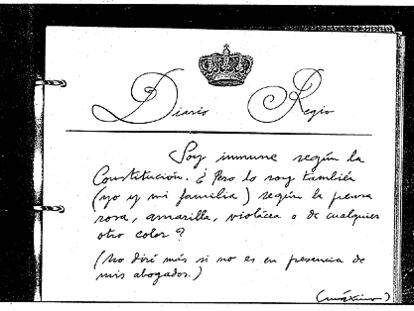 Diario Regio
Soy inmune según la
Constitución. ¿Pero lo soy también
(yo y mi familia) según la prensa
rosa, amarilla, violácea o de cualquier
otro color?
(No diré más si no es en presencia de
mis abogados.)
(máximo)